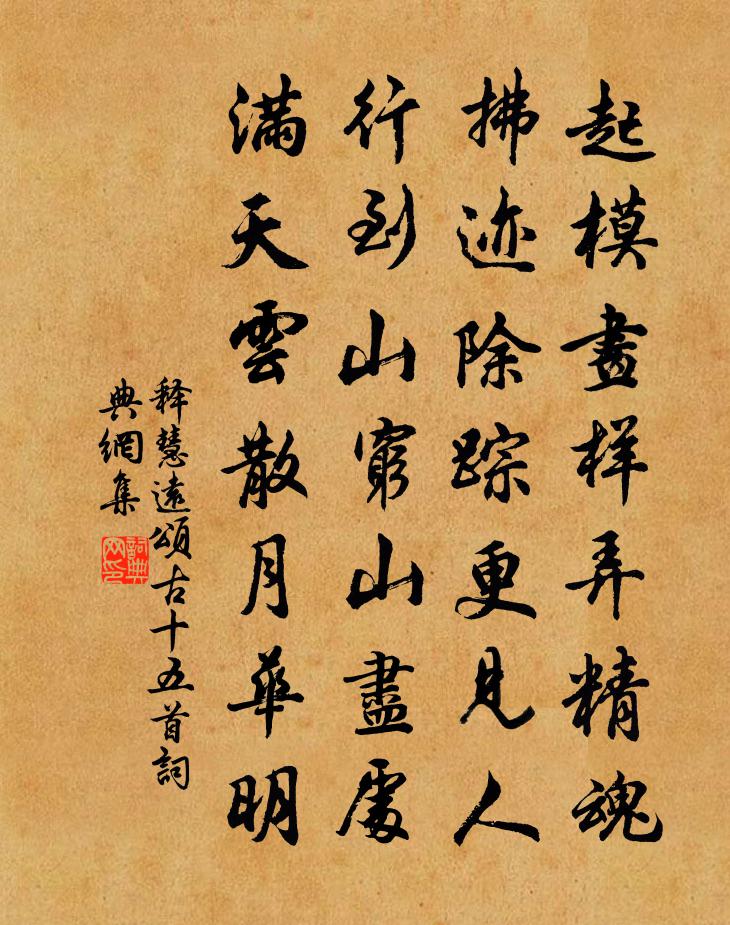 起模畫样弄精魂
拂迹除踪更見人
行到山窮山盡處
滿天雲散月華明
释慧遠頌古十五首詞
典網集
詞典网印